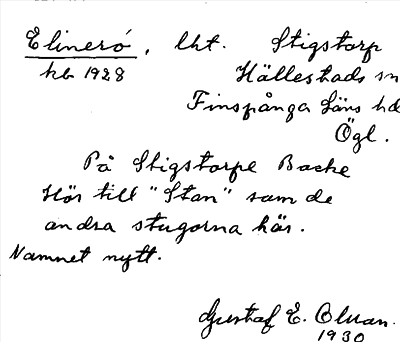 Elinerö, lht. Stigstorp
hb 1928 Hällestads sn
Finspånga läns hd
Ögl.
På Stigstorps Backe
Hör till "Stan" som de
andra stugorna här.
Namnet nytt.
Gustaf E. Olsson.
1930